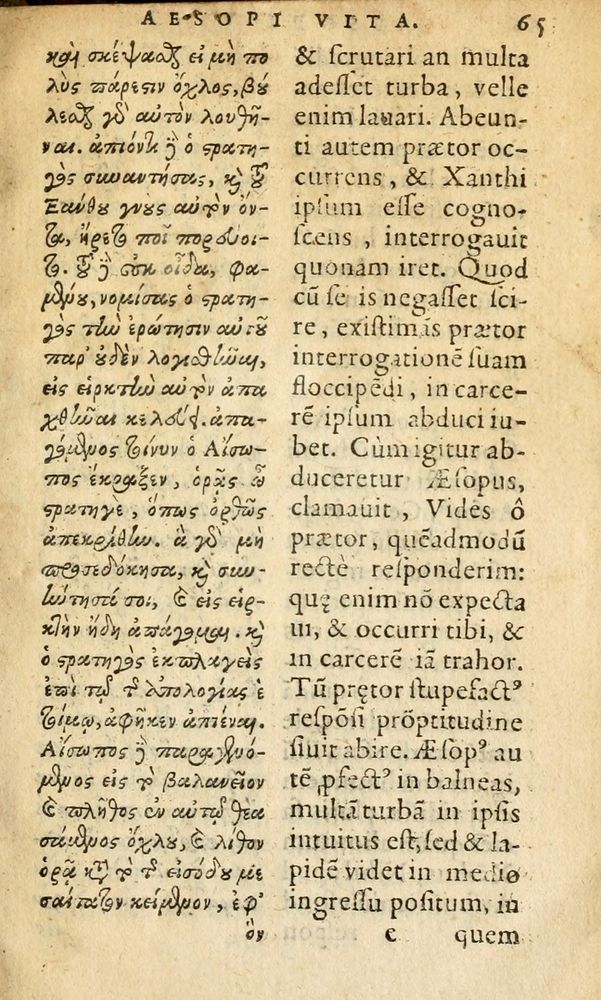 AESOPI VITA.
65
καὶ σκέψασθαι εἰ μὴ πο
λὺς πάρεστιν ὄχλος, βού
λεσθαι γὰρ αὐτὸν λουθῆ-
ναι. ἀπιόντι δὲ ὁ στρατη-
γὸς συναντήσας, καὶ τοῦ
Ξάνθου γνοὺς αὐτὸν ὄν-
τα, ἤρετο ποῖ πορεύοι-
το. τοῦ δὲ οὐκ οἶδα, φα-
μένου, νομίσας ὁ στρατη-
γὸς τὴν ἐρώτησιν αὐτοῦ
παρ' οὐδὲν λογισθῆναι,
εἰς εἱρκτὴν αὐτὸν ἀπα
χθῆναι κελεύει. ἀπα-
γόμενος τοίνυν ὁ Αἴσω-
πος ἔκραξεν, ὁρᾷς ὦ
στρατηγὲ, ὅπως ὀρθῶς
ἀπεκρίθην. ἃ γὰρ μὴ
προσεδόκησα, καὶ συν-
ήντησά σοι, καὶ εἰς εἱρ-
κτὴν ἤδη ἀπάγομαι. καὶ
ὁ στρατηγὸς ἐκπλαγεὶς
ἐπὶ τῷ τῆς ἀπολογίας ἑ
τοίμῳ, ἀφῆκεν ἀπιέναι.
Αἴσωπος δὲ παραγενό-
μενος εἰς τὸ βαλανεῖον
καὶ πλῆθος ἐν αὐτῷ θεα
σάμενος ὄχλου, καὶ λίθον
ὁρᾷ κατὰ τὸ τῆς εἰσόδου με
σαίτατον κείμενον, ἐφ'
ὃν
& ſcrutari an multa
adeſſet turba, velle
enim lauari. Abeun-
ti autem prætor oc-
currens, & Xanthi
ipſum eſſe cogno-
ſcens, interrogauit
quonam iret. Quod
cū ſe is negaſſet ſci-
re, exiſtimãs prætor
interrogationẽ ſuam
floccipẽdi, in carce-
rẽ ipſum abduci iu-
bet. Cùm igitur ab-
duceretur Æſopus,
clamauit, Vides ô
prætor, quẽadmodū
rectè reſponderim:
quę enim nõ expecta
ui, & occurri tibi, &
in carcerẽ iã trahor.
Tū prętor ſtupefactꝰ
reſpõſi prõptitudine
ſiuit abire. Æſopꝰ au
tẽ ꝓfectꝰ in balneas,
multã turbã in ipſis
intuitus eſt, ſed & la-
pidẽ videt in medio
ingreſſu poſitum, in
e quem